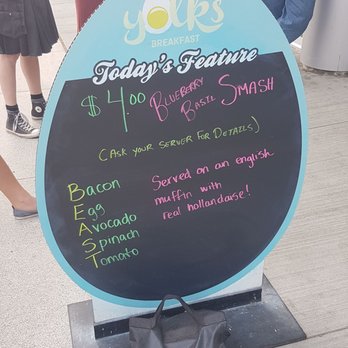 yolks
BREAKFAST
Today's Feature
$4.00 BLUEBERRY BASIL SMASH
(ASK YOUR SERVER FOR DETAILS)
Bacon
Egg
Avocado
Spinach
Tomato
Served on an english
muffin with
real hollandaise!